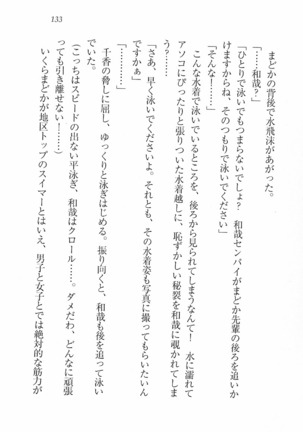 133
まどかの背後で水飛沫があがった。
「……和哉？」
「ひとりで泳いでもつまらないでしょ？　和哉センパイがまどか先輩の後ろを追いか
けますからね。そのつもりで泳いでください」
「そんな！……」
こんな水着で泳いでいるところを、後ろから見られてしまうなんて！　水に濡れて
アソコにぴったりと張りついた水着越しに、恥ずかしい秘裂を和哉に覗かれてしま
う？……。
「さあ、早く泳いでくださいよ。それとも、その水着姿も写真に撮ってもらいたいん
ですかぁ」
「………」
千香の脅しに屈し、ゆっくりと泳ぎはじめる。振り向くと、和哉も後を追って泳い
でいた。
（こっちはスピードの出ない平泳ぎ、和哉はクロール……。ダメだわ、どんなに頑張
っても引き離せない！……）
いくらまどかが地区トップのスイマーとはいえ、男子と女子とでは絶対的な筋力が